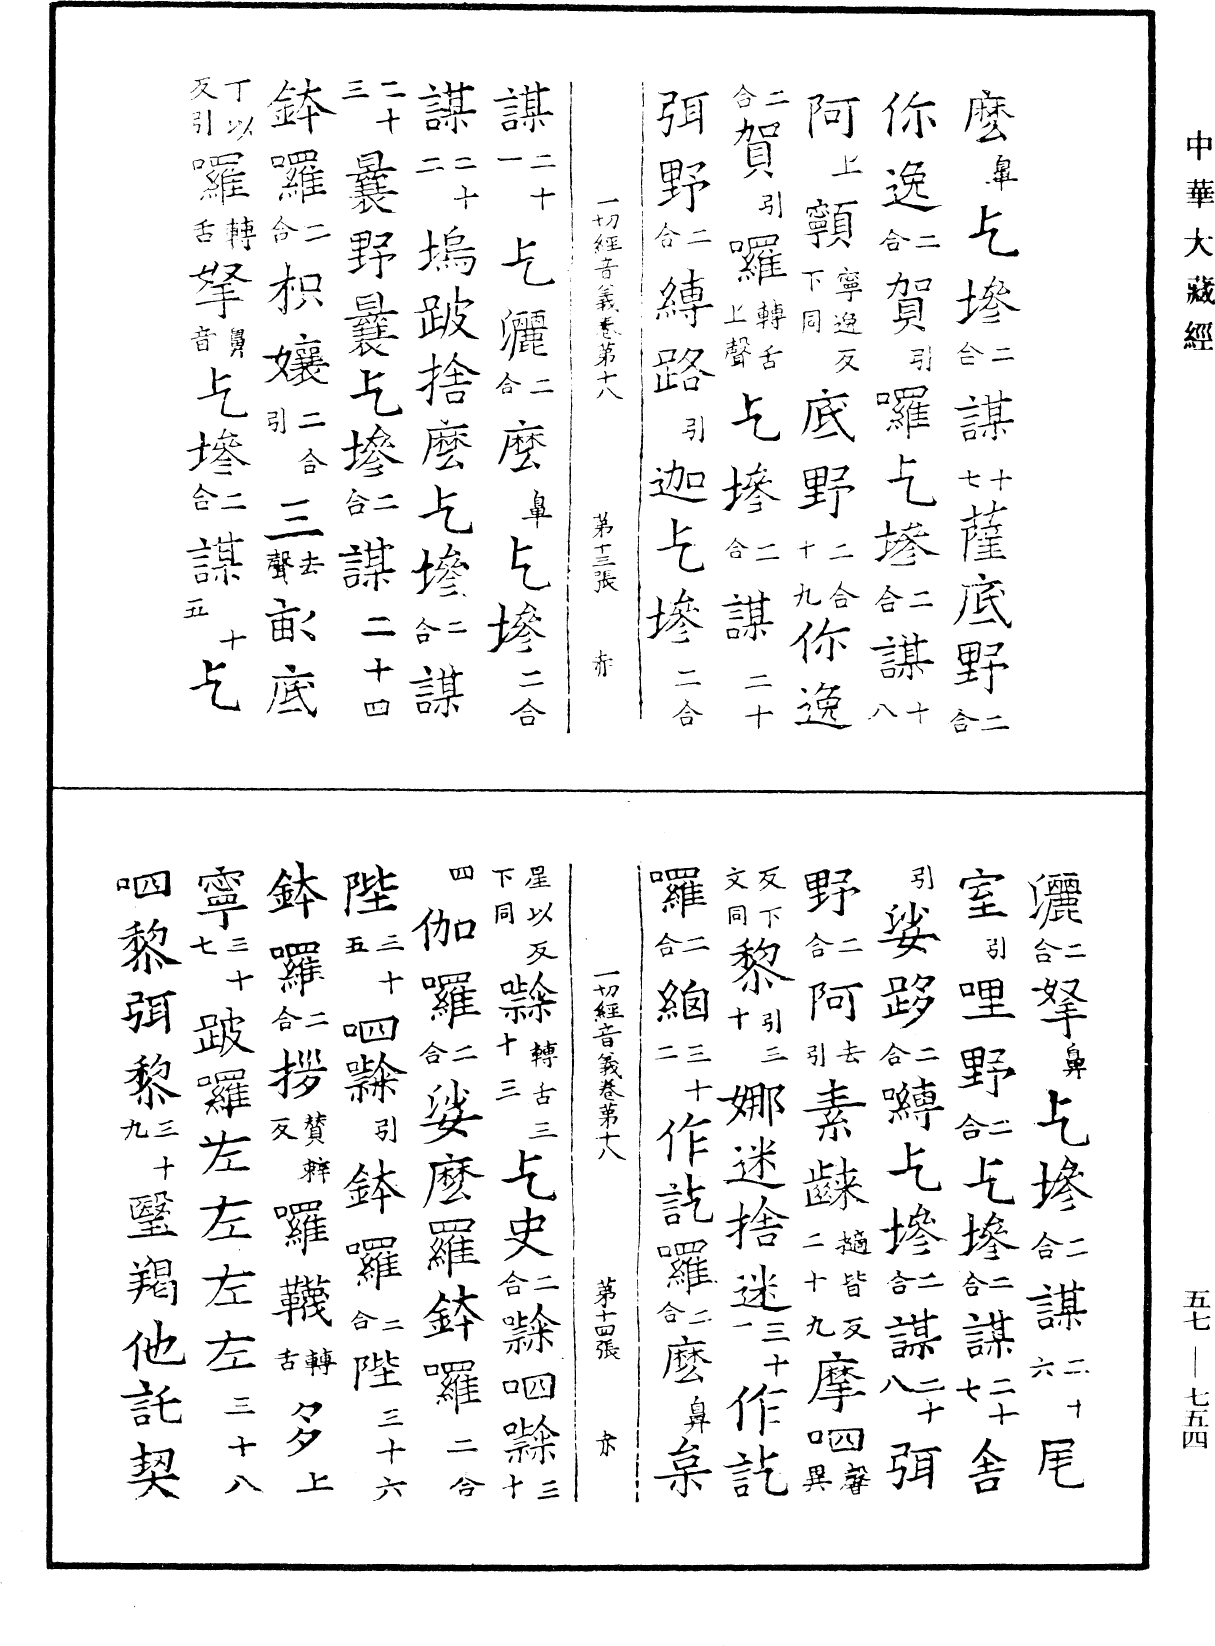 中華大藏經
麼鼻乞摻二合謀十七薩底野二合
你逸二合賀引囉乞摻二合謀十八
阿上顙寧逸反下同底野二合十九你逸
二合賀引囉轉舌上聲乞摻二合謀二十
弭野二合縛路引迦乞摻二合
一切經音義卷第十八 第十三張 赤
謀二十一乞灑二合麼鼻乞摻二合
謀二十二塢跛捨麼乞摻二合謀
二十三曩野曩乞摻二合謀二十四
鉢囉二合枳孃二合引三去聲畝底
丁以反引囉轉舌拏鼻音乞摻二合謀十五乞
灑二合拏鼻乞摻二合謀二十六尾
室引哩野二合乞摻二合謀二十七舍
引娑跢二合嚩乞摻二合謀二十八弭
野二合阿去引素𪘨摠皆反二十九摩呬馨異
反下文同黎引三十娜迷捨迷三十一作訖
囉二合緬三十二作訖囉二合麼鼻枲
一切經音義卷第十八 第十四張 赤
星以反下同㘑轉舌三十三乞史二合㘑呬㘑三十
四伽囉二合娑麼羅鉢囉二合
陛三十五呬㘑引鉢囉二合陛三十六
鉢囉二合拶贊辢反囉韈轉舌多上
寧三十七跛囉左左左左三十八
呬黎弭黎三十九瑿羯他託契
五七—七五四